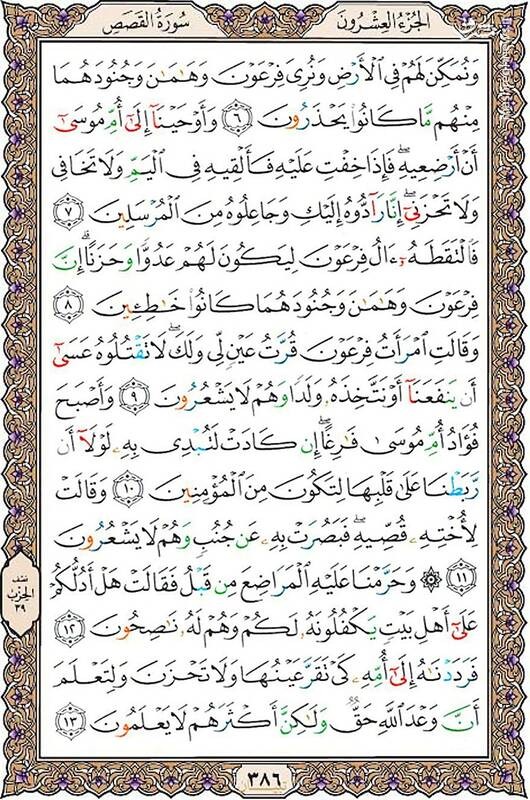 الجُزءُ العِشْرُونَ
سُورَةُ القَصَصِ
وَنُمَكِّنَ لَهُمْ فِي ٱلْأَرْضِ وَنُرِيَ فِرْعَوْنَ وَهَٰمَٰنَ وَجُنُودَهُمَا
مِنْهُم مَّا كَانُوا۟ يَحْذَرُونَ ۝٦ وَأَوْحَيْنَآ إِلَىٰٓ أُمِّ مُوسَىٰٓ
أَنْ أَرْضِعِيهِ ۖ فَإِذَا خِفْتِ عَلَيْهِ فَأَلْقِيهِ فِي ٱلْيَمِّ وَلَا تَخَافِي
وَلَا تَحْزَنِيٓ ۖ إِنَّا رَآدُّوهُ إِلَيْكِ وَجَاعِلُوهُ مِنَ ٱلْمُرْسَلِينَ ۝٧
فَٱلْتَقَطَهُۥٓ ءَالُ فِرْعَوْنَ لِيَكُونَ لَهُمْ عَدُوًّا وَحَزَنًا ۗ إِنَّ
فِرْعَوْنَ وَهَٰمَٰنَ وَجُنُودَهُمَا كَانُوا۟ خَٰطِـِٔينَ ۝٨
وَقَالَتِ ٱمْرَأَتُ فِرْعَوْنَ قُرَّتُ عَيْنٍ لِّي وَلَكَ ۖ لَا تَقْتُلُوهُ عَسَىٰٓ
أَن يَنفَعَنَآ أَوْ نَتَّخِذَهُۥ وَلَدًا وَهُمْ لَا يَشْعُرُونَ ۝٩ وَأَصْبَحَ
فُؤَادُ أُمِّ مُوسَىٰ فَٰرِغًا ۖ إِن كَادَتْ لَتُبْدِي بِهِۦ لَوْلَآ أَن
رَّبَطْنَا عَلَىٰ قَلْبِهَا لِتَكُونَ مِنَ ٱلْمُؤْمِنِينَ ۝١٠ وَقَالَتْ
لِأُخْتِهِۦ قُصِّيهِ ۖ فَبَصُرَتْ بِهِۦ عَن جُنُبٍ وَهُمْ لَا يَشْعُرُونَ
۝١١ ۞ وَحَرَّمْنَا عَلَيْهِ ٱلْمَرَاضِعَ مِن قَبْلُ فَقَالَتْ هَلْ أَدُلُّكُمْ
عَلَىٰٓ أَهْلِ بَيْتٍ يَكْفُلُونَهُۥ لَكُمْ وَهُمْ لَهُۥ نَٰصِحُونَ ۝١٢
فَرَدَدْنَٰهُ إِلَىٰٓ أُمِّهِۦ كَيْ تَقَرَّ عَيْنُهَا وَلَا تَحْزَنَ وَلِتَعْلَمَ
أَنَّ وَعْدَ ٱللَّهِ حَقٌّ وَلَٰكِنَّ أَكْثَرَهُمْ لَا يَعْلَمُونَ ۝١٣
نصف
الحزب
٣٩
٣٨٦